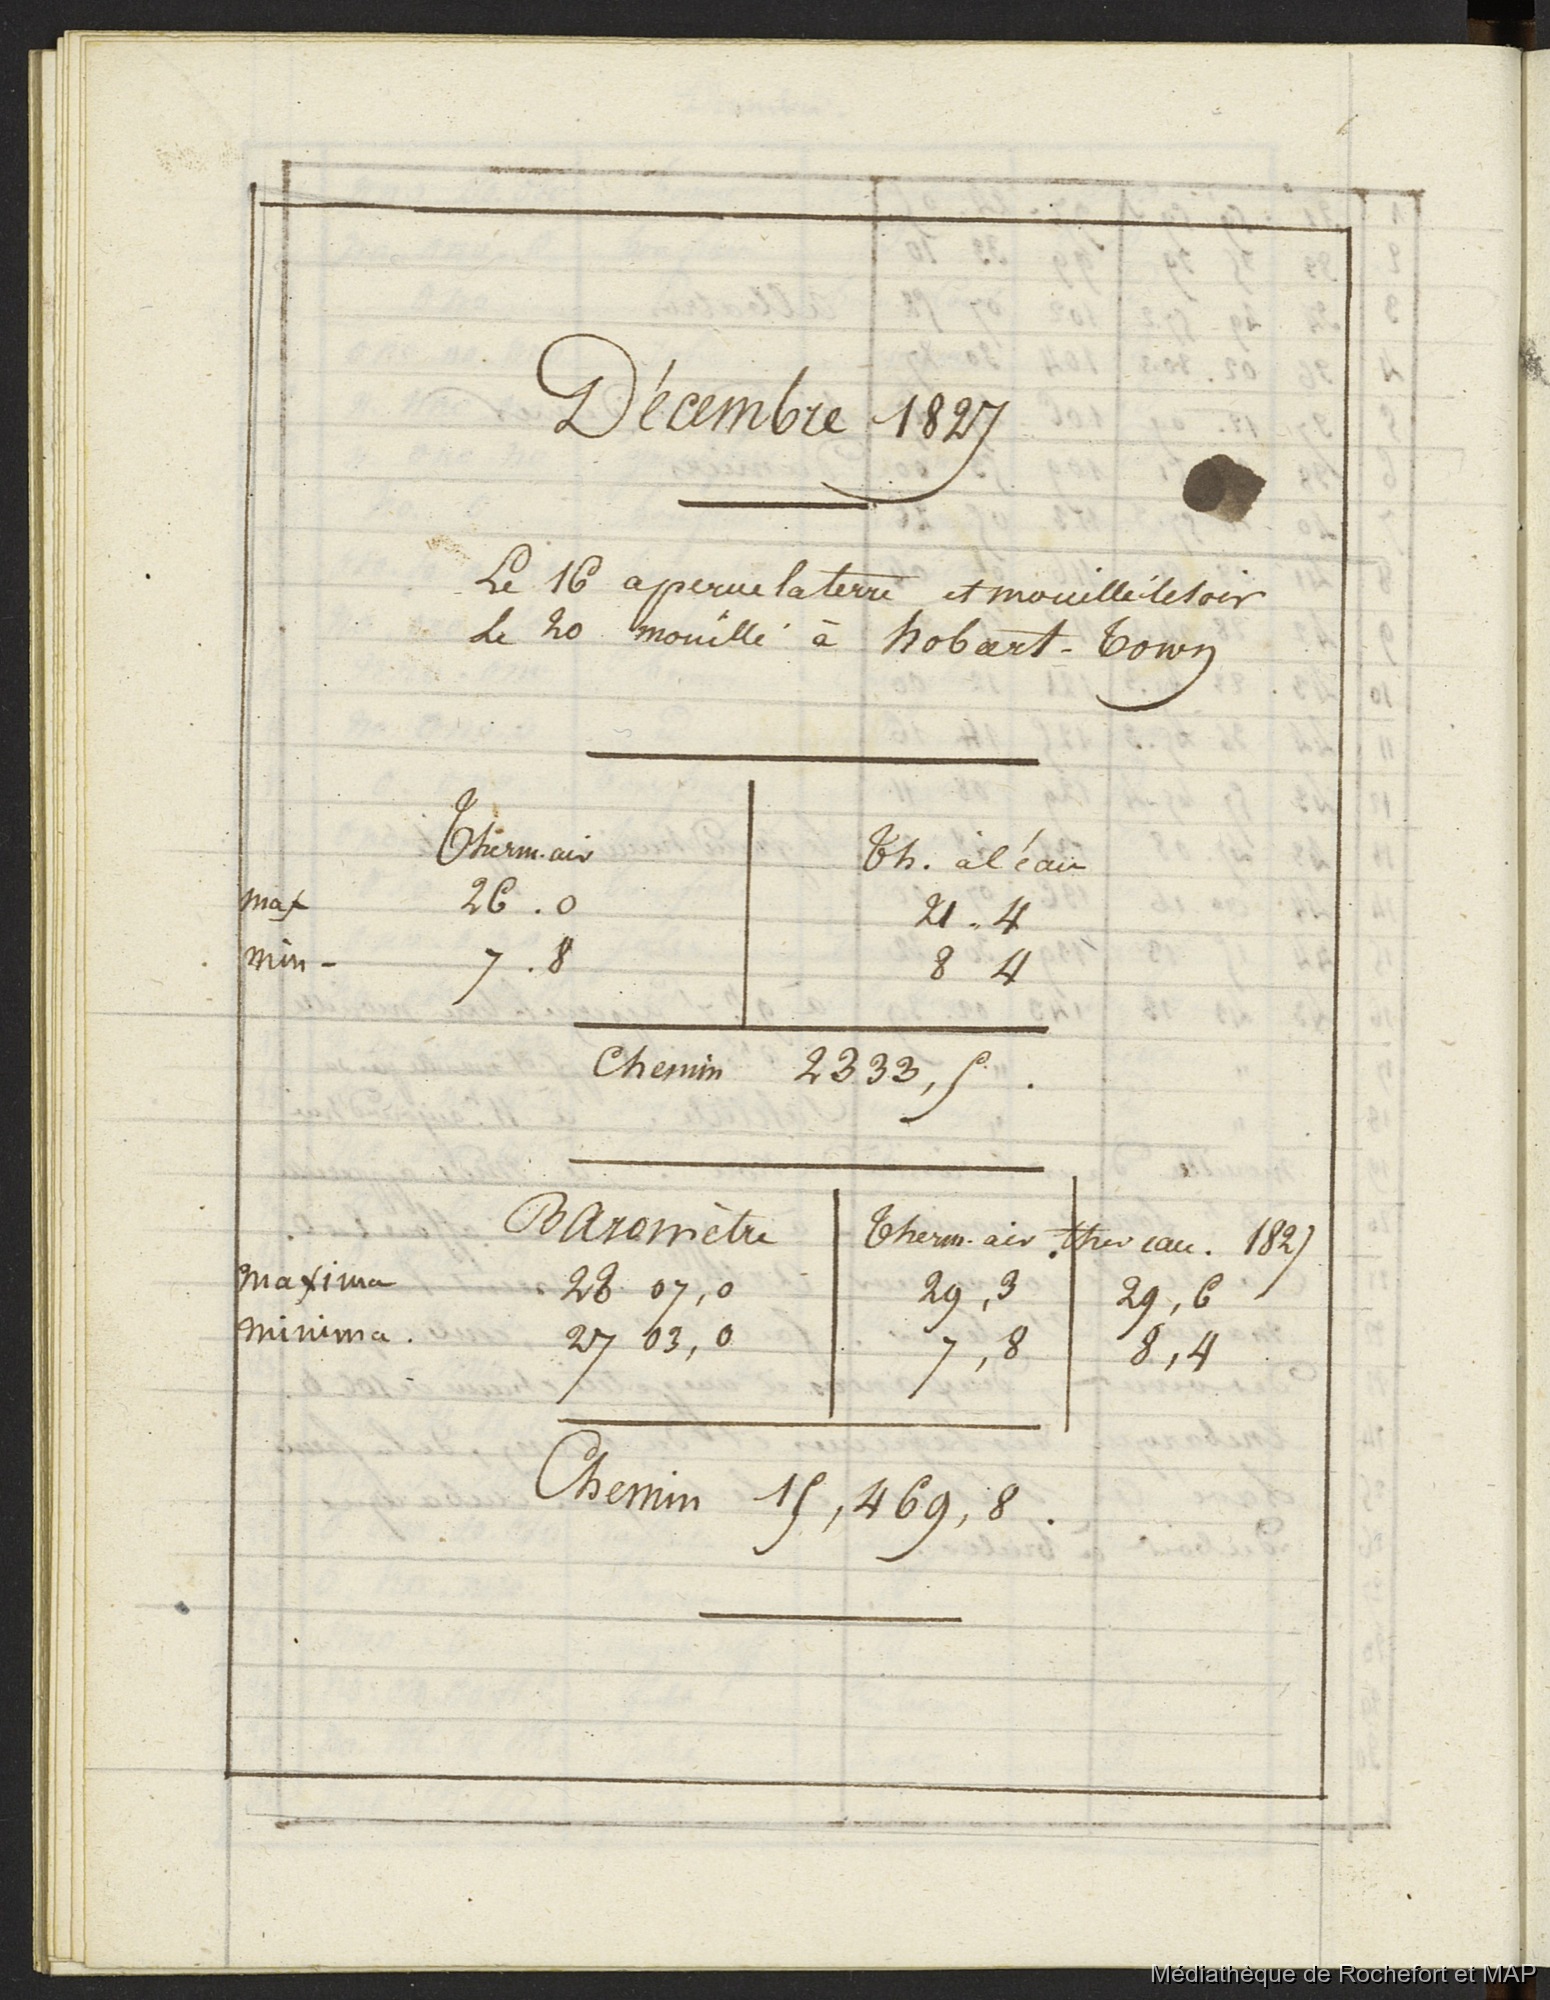 Décembre 1827
Le 16 aperçue la terre et mouillé le soir
Le 20 mouillé à hobart-Town
Therm. air Th. à l'eau
max 26.0 21.4
min - 7.8 8 4
Chemin 2333,5.
Baromètre Therm. air. ther eau. 1827
maxima 28 07,0 29,3 29,6
minima. 27 03,0 7,8 8,4
Chemin 15,469,8.
Médiathèque de Rochefort et MAP